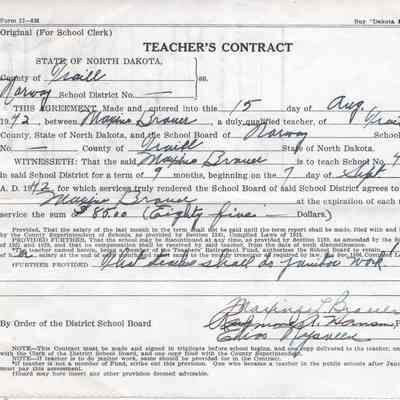 Form 11-4M Buy "Dakota
Original (For School Clerk)
TEACHER'S CONTRACT
STATE OF NORTH DAKOTA,
County of Traill ss.
Norway School District No. —
THIS AGREEMENT, Made and entered into this 15 day of Aug.
1942, between Maxine Brauer a duly qualified teacher, of Trai
County, State of North Dakota, and the School Board of Norway School
No. — County of Traill State of North Dakota.
WITNESSETH: That the said Maxine Brauer is to teach School
in said School District for a term of 9 months, beginning on the 7 day of Sept
A. D. 1942 for which services truly rendered the School Board of said School District agrees to
Maxine Brauer at the expiration of each
service the sum of $85.00 (Eighty five — Dollars)
Provided, That the salary of the last month in the term shall not be paid until the term report shall be made, filed with and
by the County Superintendent of Schools, as provided by Section
PROVIDED FURTHER, That the school may be discontinued at any time, as provided by Section
(FURTHER PROVIDED) The teacher shall do janitor work
By Order of the District School Board
NOTE—This Contract must be made and signed in triplicate before school begins, and one copy delivered to the teacher, one
with the Clerk of the District School Board, and one copy filed with the County Superintendent.
NOTE—If teacher is to do janitor work, same should be provided for in the Contract.
*If teacher is not a member of Fund, strike out this provision. One who became a teacher in the public schools after Jan
must pay this assessment.
(Board may here insert any other provision deemed advisable.